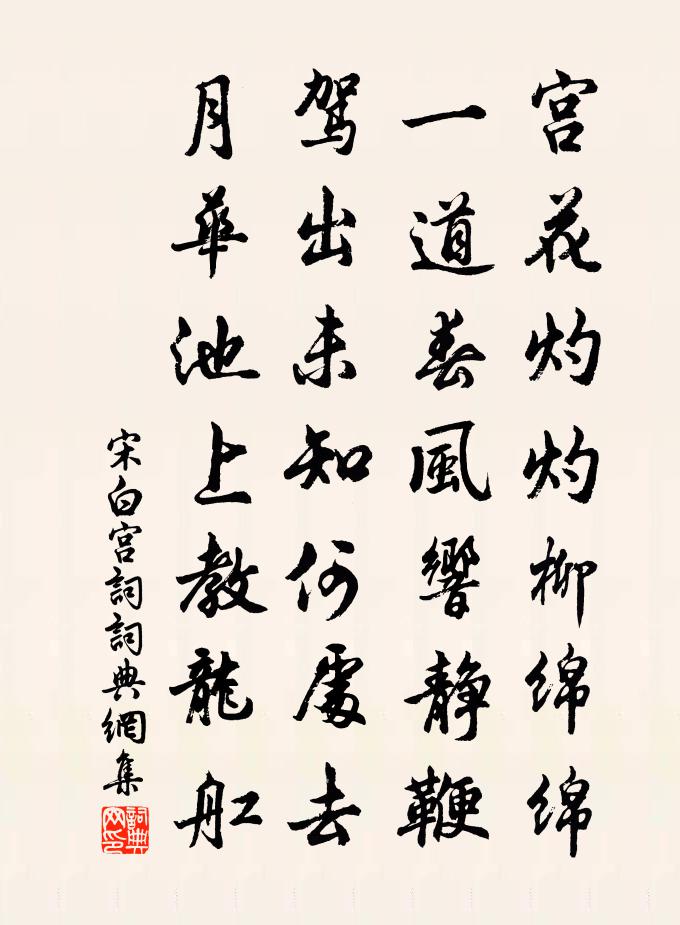 宫花灼灼柳绵绵
一道春風響静鞭
駕出未知何處去
月華池上教龍舡
宋白宫詞詞典網集
詞典网印